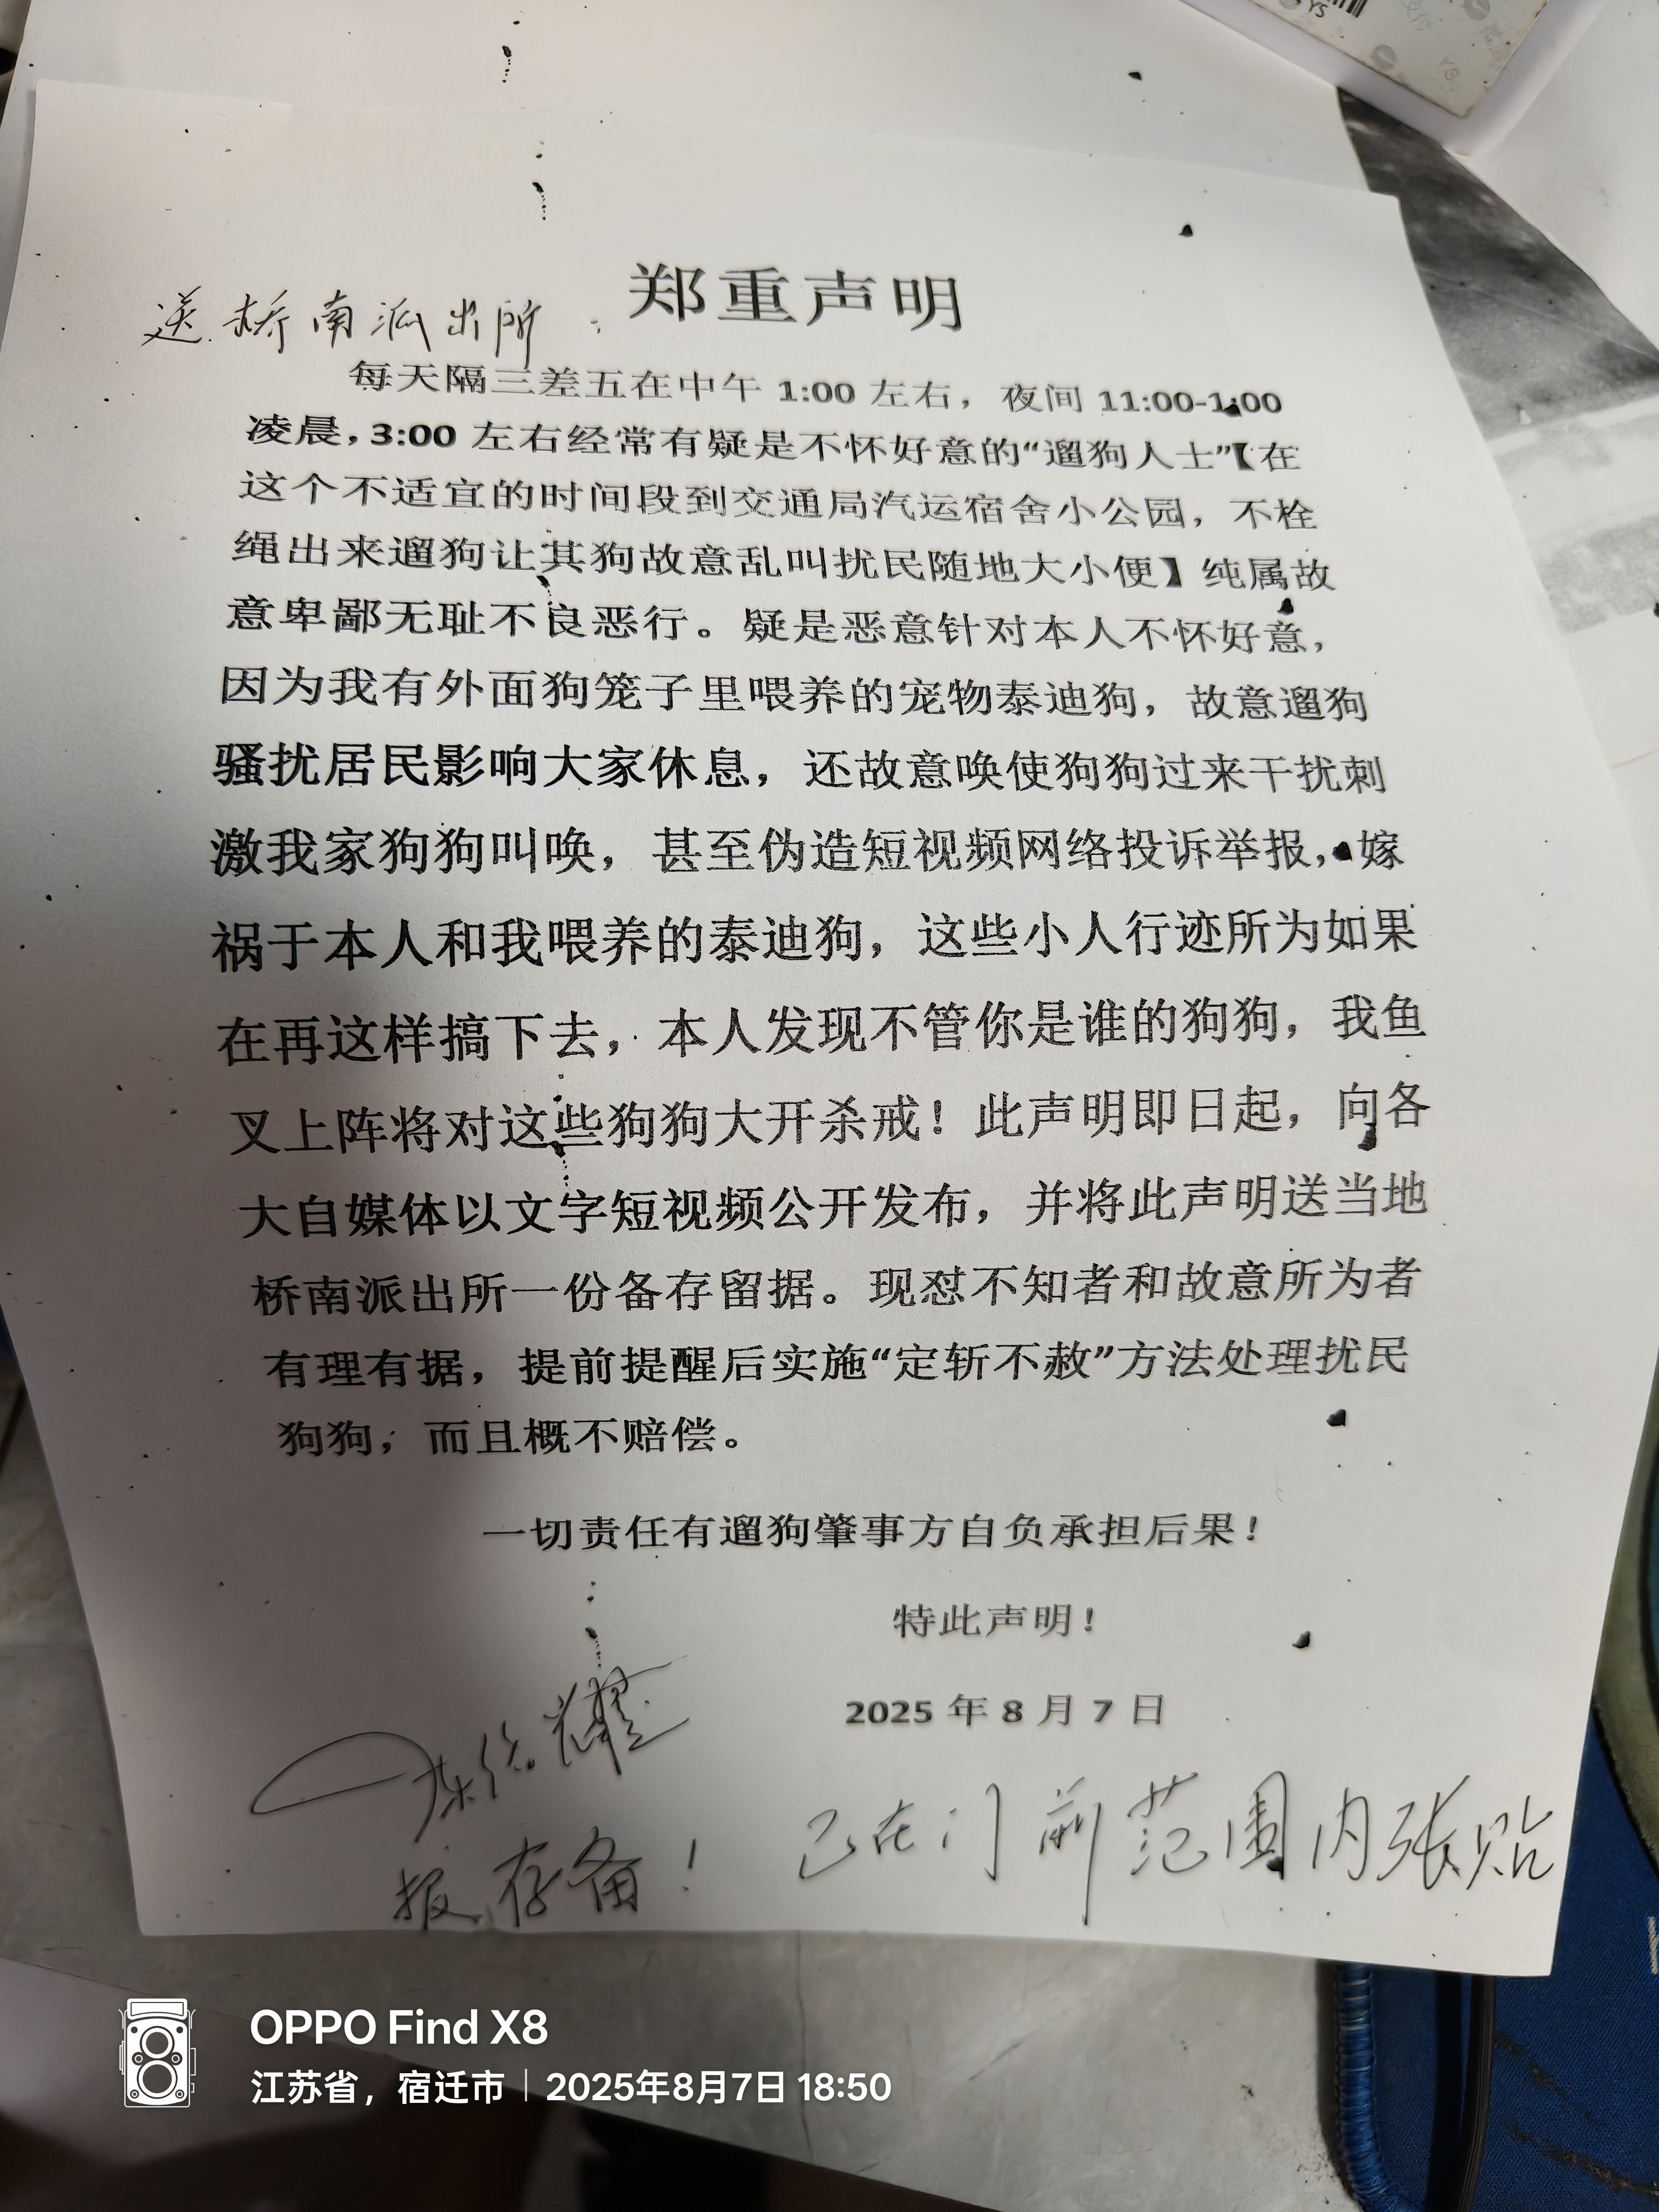 郑重声明
送桥南派出所：
每天隔三差五在中午 1:00 左右，夜间 11:00-1:00
凌晨，3:00 左右经常有疑是不怀好意的“遛狗人士”【在
这个不适宜的时间段到交通局汽运宿舍小公园，不栓
绳出来遛狗让其狗故意乱叫扰民随地大小便】纯属故
意卑鄙无耻不良恶行。疑是恶意针对本人不怀好意，
因为我有外面狗笼子里喂养的宠物泰迪狗，故意遛狗
骚扰居民影响大家休息，还故意唤使狗狗过来干扰刺
激我家狗狗叫唤，甚至伪造短视频网络投诉举报，嫁
祸于本人和我喂养的泰迪狗，这些小人行迹所为如果
在再这样搞下去，本人发现不管你是谁的狗狗，我鱼
叉上阵将对这些狗狗大开杀戒！此声明即日起，向各
大自媒体以文字短视频公开发布，并将此声明送当地
桥南派出所一份备存留据。现怼不知者和故意所为者
有理有据，提前提醒后实施“定斩不赦”方法处理扰民
狗狗，而且概不赔偿。
一切责任有遛狗肇事方自负承担后果！
特此声明！
2025 年 8 月 7 日
报存备！
已在门前范围内张贴
OPPO Find X8
江苏省，宿迁市｜2025年8月7日 18:50
YS